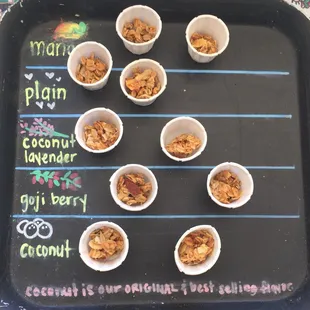 plain
coconut
lavender
goji berry
coconut
coconut is our ORIGINAL & best selling flavor